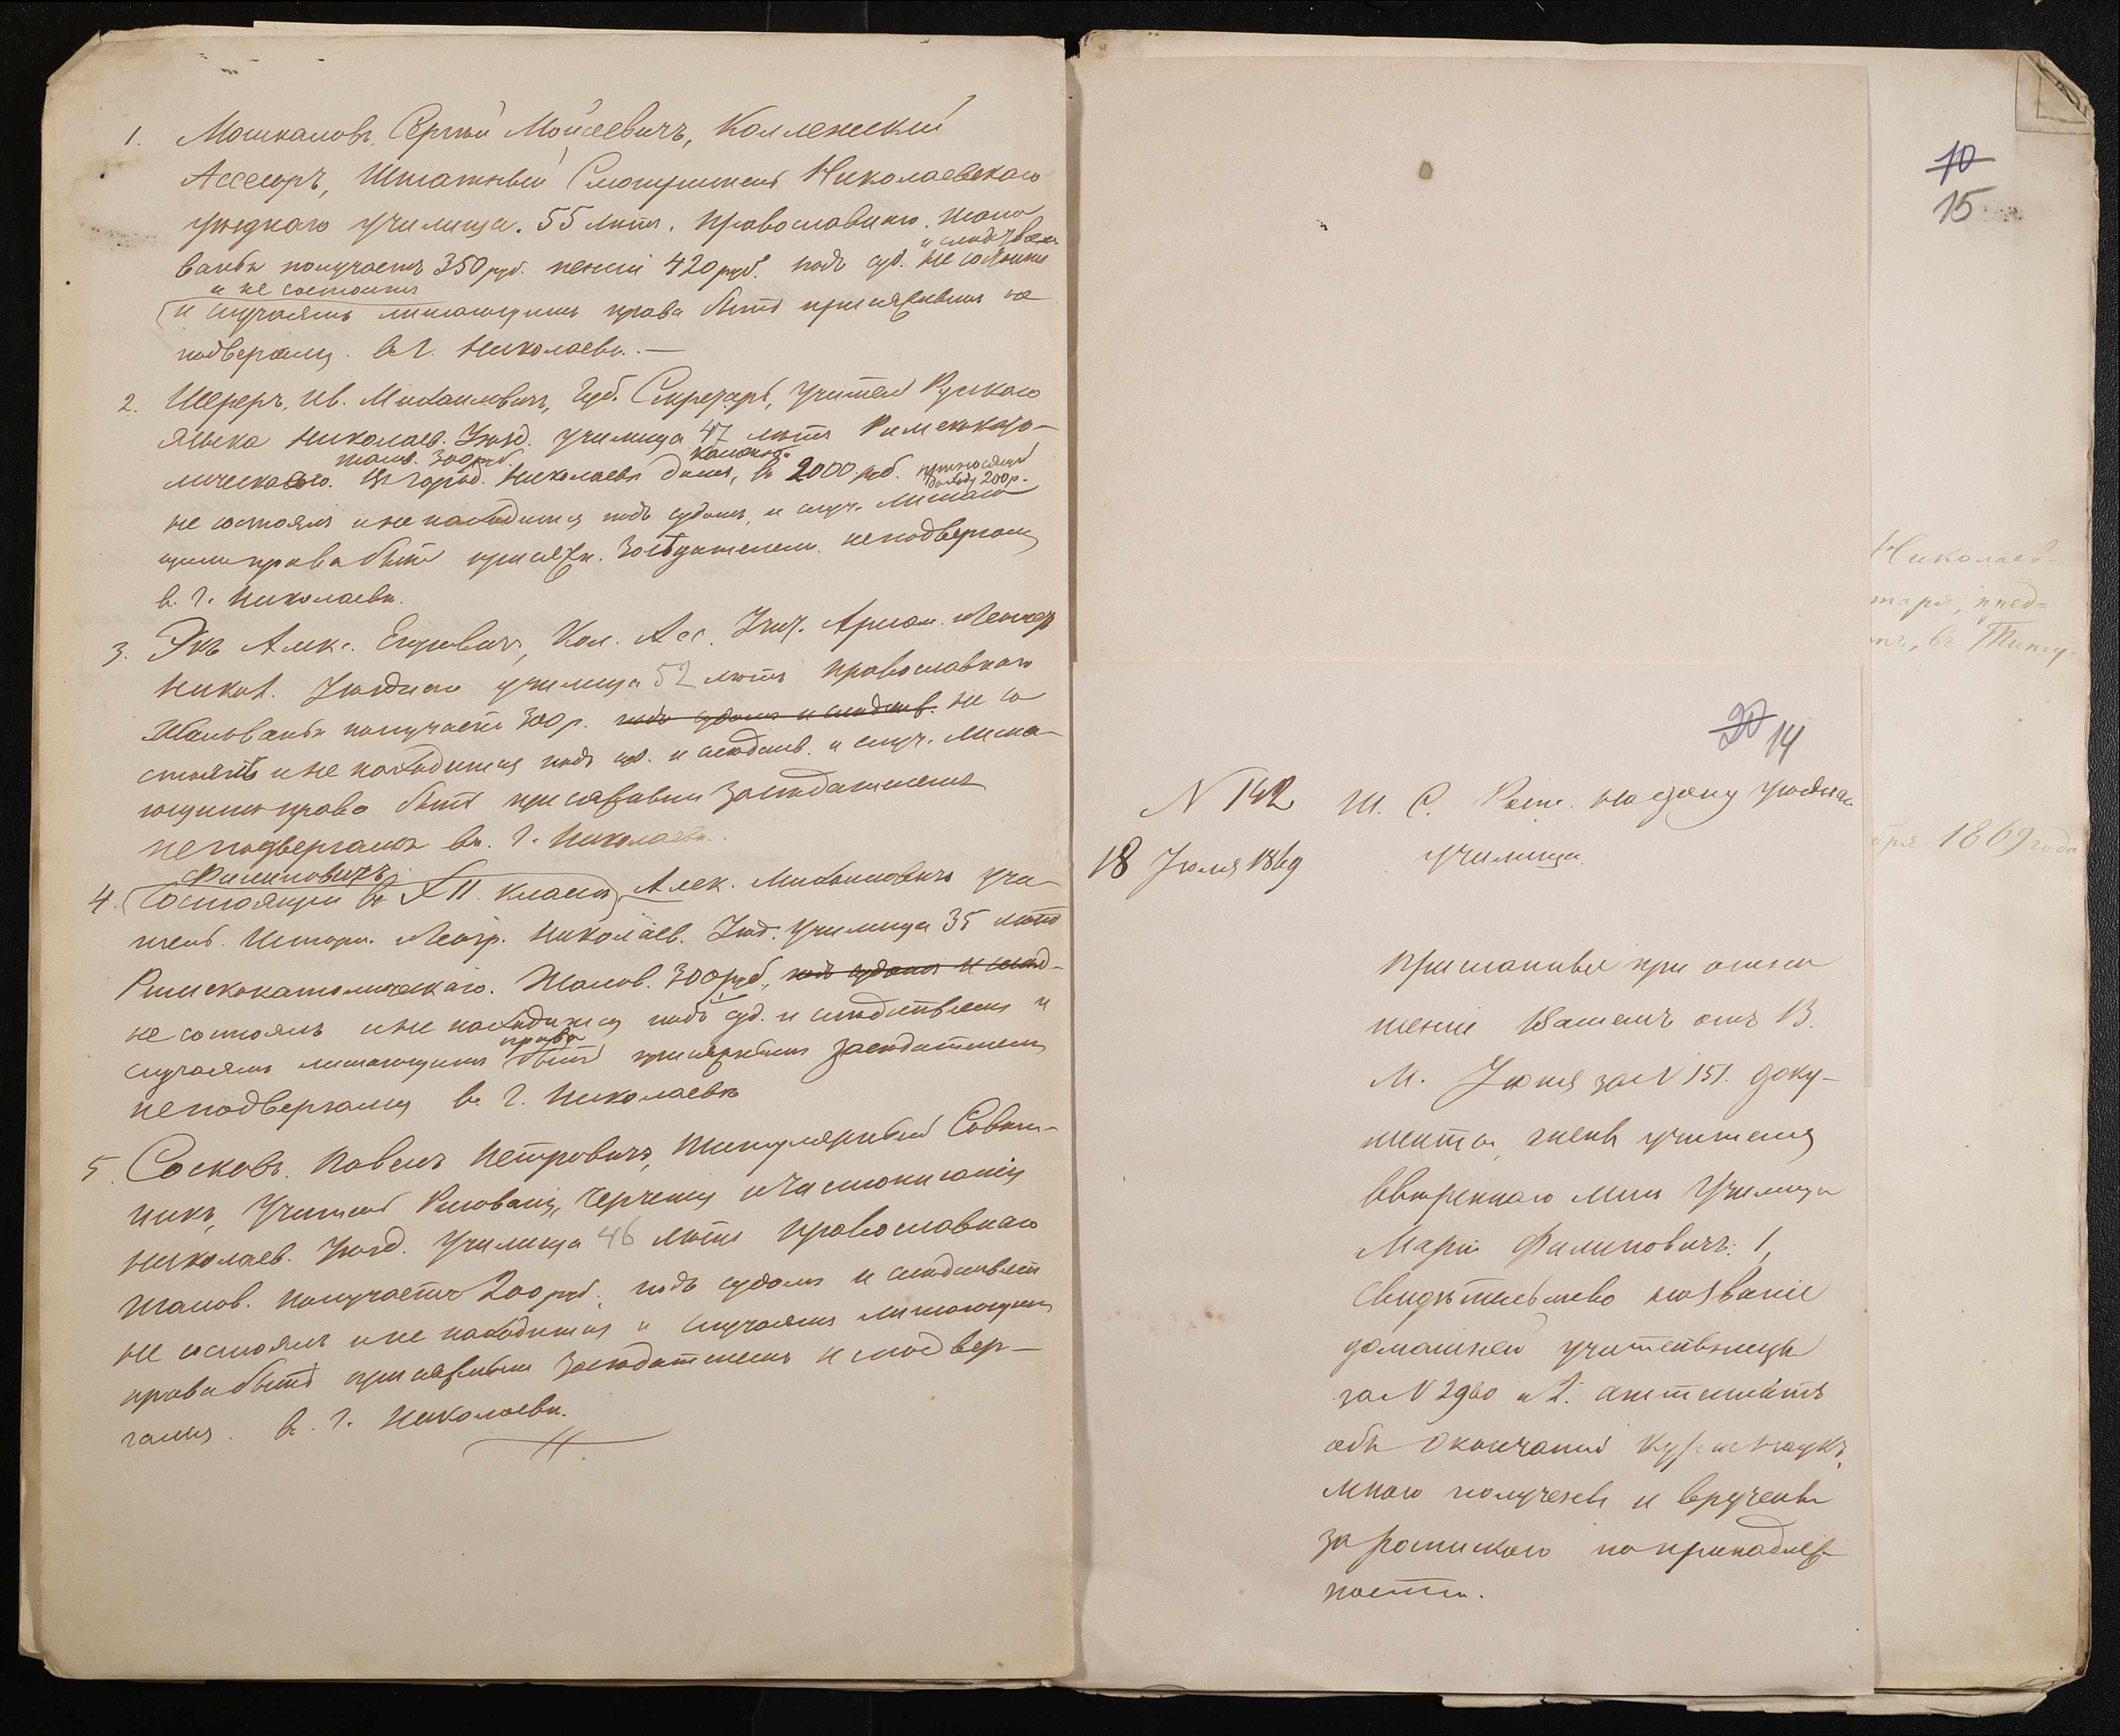 1. Мошкаловъ, Сергѣй Мойсеевичъ, Коллежскій
Ассесоръ, Штатный Смотритель Николаевскаго
уѣзднаго училища. 55 лѣтъ. Православнаго. Жало
и слѣдствіем
ванья получаетъ 350 руб. пенсіи 420 руб. подъ суд. не состоялъ
и не состоитъ
и случаямъ лишающимъ права быть присяжнымъ не
подвергался. въ г. Николаевѣ. —
2. Шереръ, Ив. Михаиловичъ, Губ. Секретарь, Учитель Русскаго
языка Николаев. Уѣзд. училища 47 лѣтъ Римскокато-
жалов. 300 руб. каменный
лическаго. въ город. Николаевѣ домъ, въ 2000 руб. приносящій
доходу 200 р.
не состоялъ и не находится подъ судомъ, и случ. лишаю
щимъ права быть присяжн. Засѣдателемъ неподвергался
в. г. Николаевѣ.
3. Экъ Алкс. Егоровичъ, Кол. Асс. Учит. Ариѳм. Геометр
Никол. Уѣзднаго училища 52 лѣтъ Православнаго
Жалованья получаетъ 300 р. подъ судомъ и слѣдств. не со
стоялъ и не находится подъ суд. и слѣдств. и случ. лиша-
ющимъ права быть присяжнымъ Засѣдателемъ
неподвергался въ. г. Николаевѣ.
Филиповичъ
4. Состоящій въ XII. классѣ, Алек. Михаиловичъ учи-
тель. Истори. Геогр. Николаев. Уѣзд. Училища 35 лѣтъ
Римскокатолическаго. Жалов. 300 руб., подъ судомъ и слѣд-
не состоялъ и не находится подъ суд. и слѣдствіемъ и
права
случаямъ лишающимъ быть присяжнымъ засѣдателемъ
неподвергался в. г. Николаевѣ
5. Сосковъ. Павелъ Петровичъ, Титулярный Совѣт-
никъ, Учитель Рисованія, Черченія и Чистописанія
Николаев. Уѣзд. Училища 46 лѣтъ Православнаго
жалов. получаетъ 200 руб. подъ судомъ и слѣдствіем
не состоялъ и не находится и случаямъ лишающимъ
права быть присяжнымъ Засѣдателемъ неподвер-
гался. в. г. Николаевѣ.
10
15
Николаев-
таря, пред=
въ Титу-
бря 1869 года
20 14
N 142 Ш. С. Рост. на Дону уѣздна
18 Іюля 1869 училища.
Присланные при отно
шеніи Вашемъ отъ 13.
м. Іюня за N 151. доку-
менты, жены учителя
ввѣреннаго мнѣ Училища
Маріи Филиповичъ: 1,
свидѣтельство на званіе
домашней учительницы
за N 2960 и 2. аттестатъ
объ окончаніи курса наукъ,
мною получены и вручены
за роспискою по принадлеж-
ности.